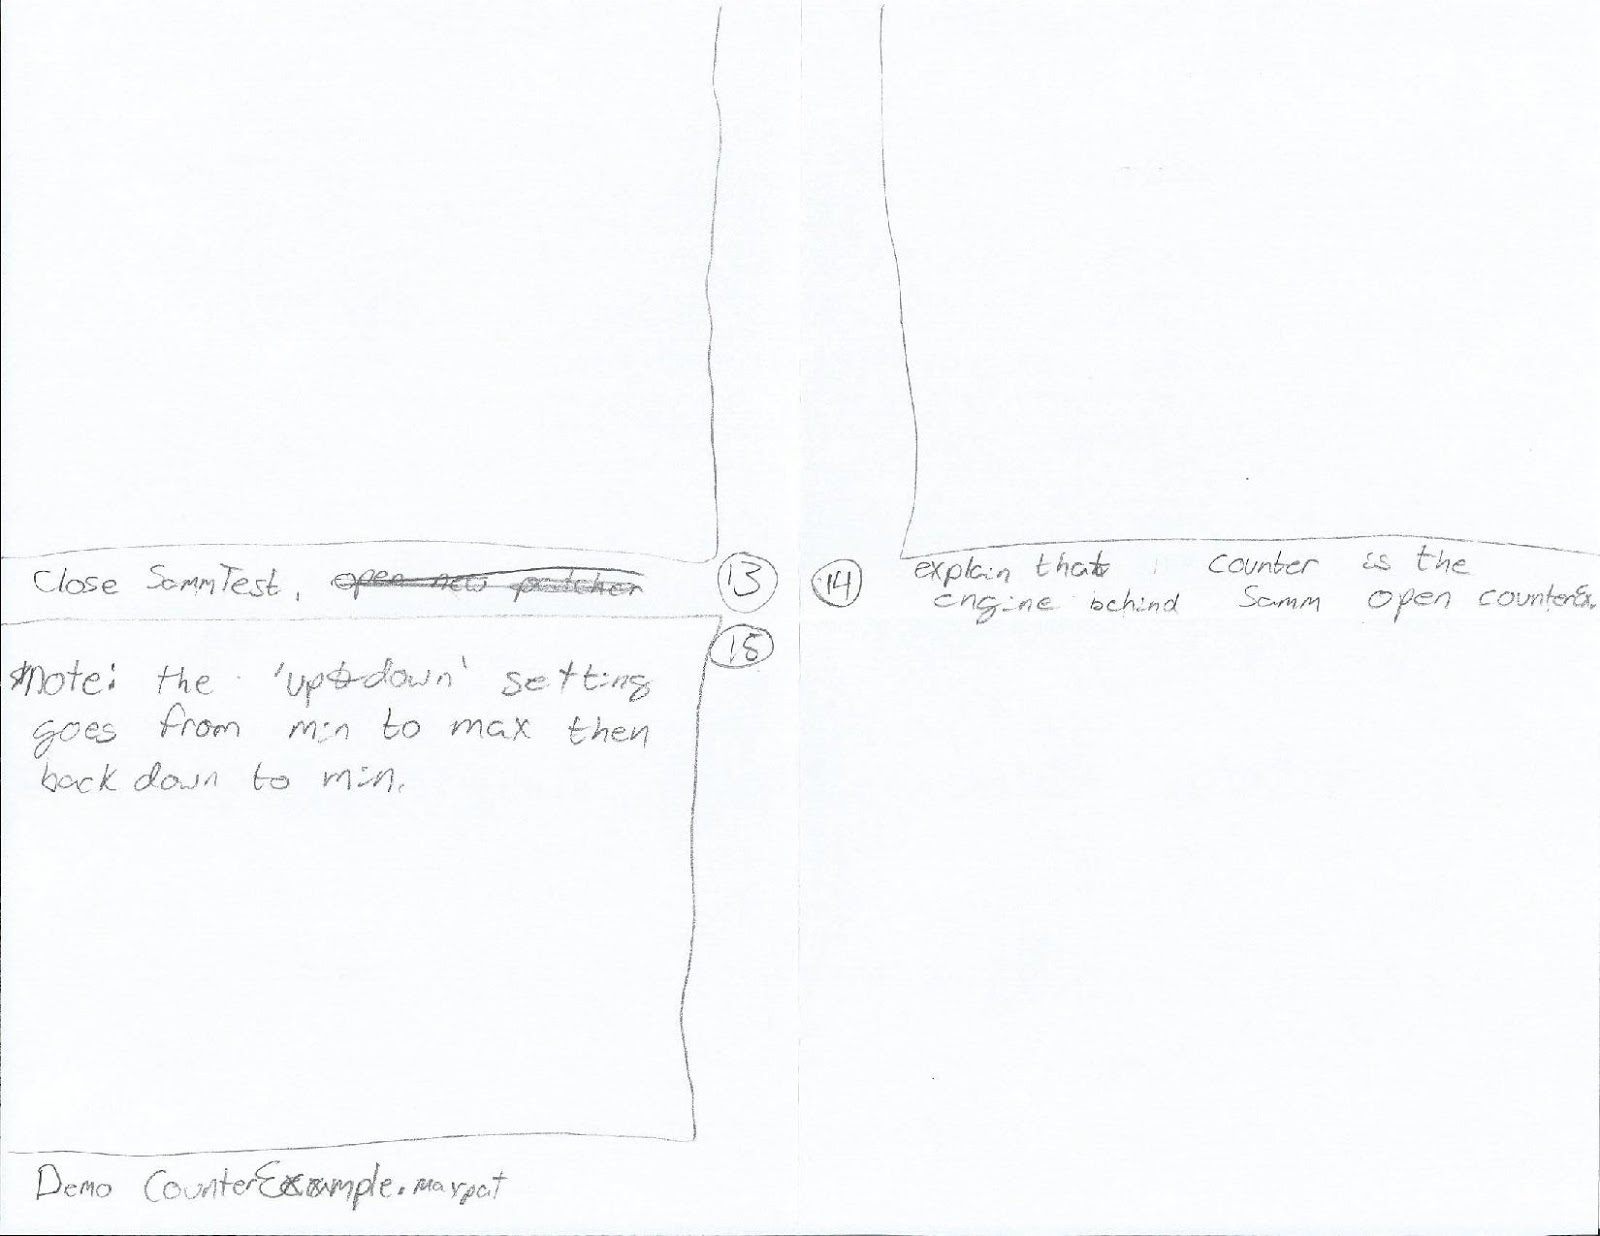 Close SammTest, open new patcher 13
14 explain that counter is the
engine behind Samm open counterEx.
15
*Note: the 'up-down' setting
goes from min to max then
back down to min.
Demo CounterExample.maxpat